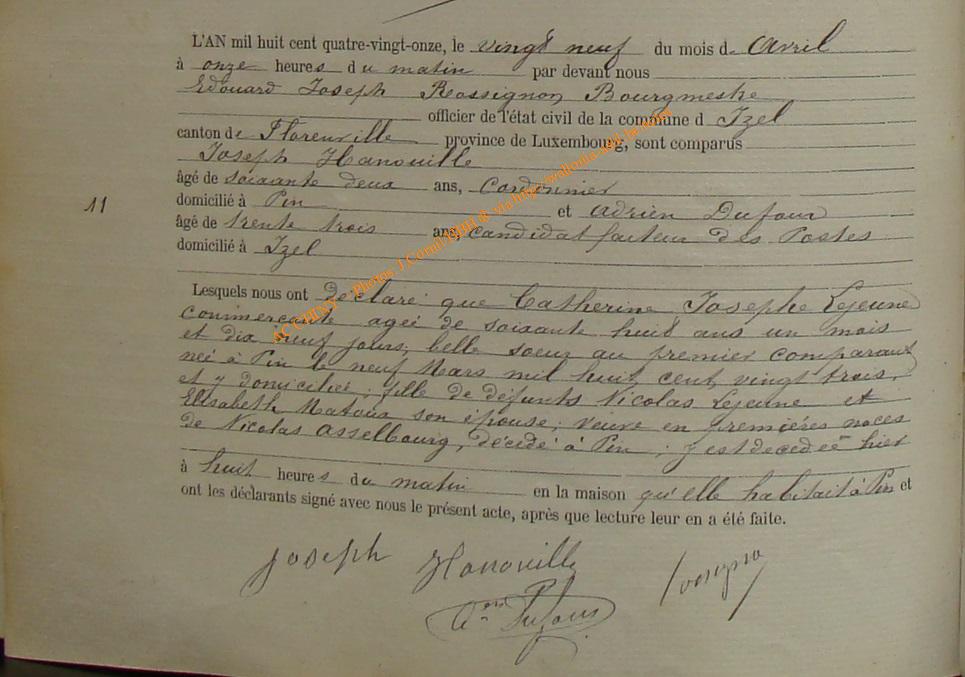 L'AN mil huit cent quatre-vingt-onze, le vingt neuf du mois d Avril
à onze heures du matin par devant nous
Edouard Joseph Rossignon Bourgmestre
officier de l'état civil de la commune d Izel
canton de Florenville province de Luxembourg, sont comparus
Joseph Hanouille
âgé de soixante deux ans, Cordonnier
domicilié à Pin et Adrien Dufour
11
âgé de trente trois ans, candidat facteur des Postes
domicilié à Izel
Lesquels nous ont déclaré que Catherine Josephe Lejeune
commerçante agée de soixante huit ans un mois
et dix neuf jours, belle soeur au premier comparant
née à Pin le neuf Mars mil huit cent vingt trois,
et y domiciliée ; fille de défunts Nicolas Lejeune et
Elisabeth Matoux son épouse ; veuve en premières noces
de Nicolas Asselbourg, décédé à Pin ; y est décédée hier
à huit heures du matin en la maison qu'elle habitait à Pin et
ont les déclarants signé avec nous le présent acte, après que lecture leur en a été faite.
Joseph Hanouille
Dufour